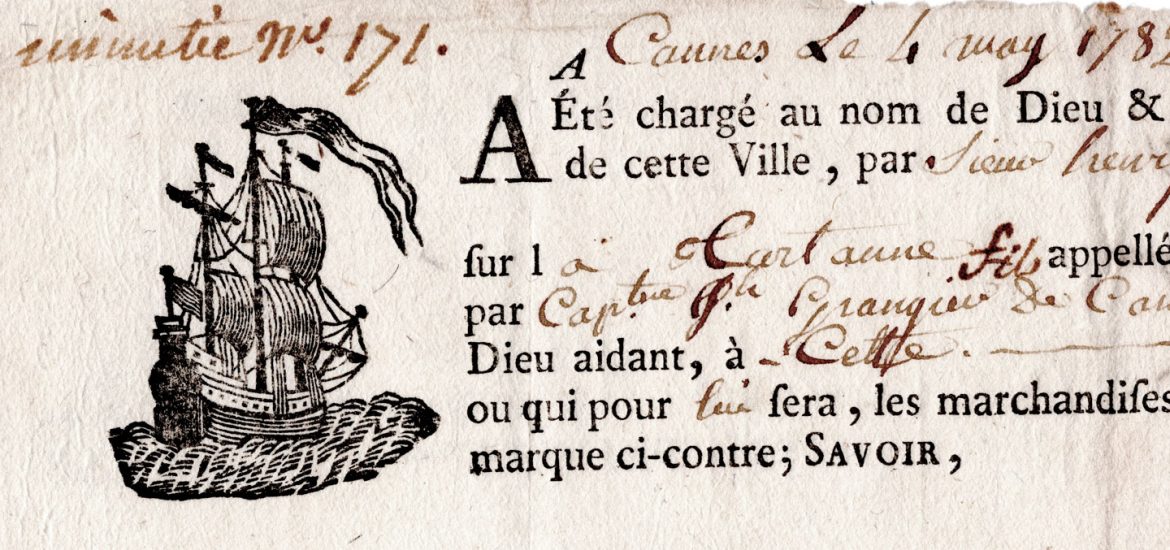 N.º 171.
A Cannes Le 4 may 178
A Été chargé au nom de Dieu &
de cette Ville, par Sieur henry
ſur l a Tartanne appellé
par Cap.tne de Can
Dieu aidant, à Cette.
ou qui pour lui ſera, les marchandiſes
marque ci-contre; SAVOIR,